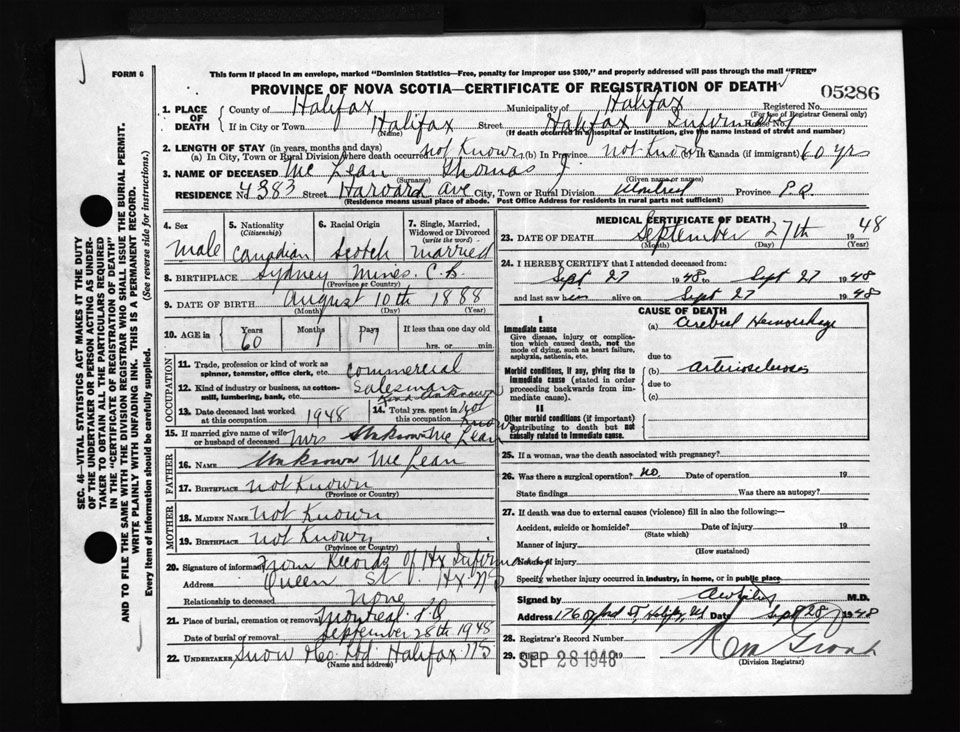 FORM 6
This form if placed in an envelope, marked "Dominion Statistics—Free, penalty for improper use $300," and properly addressed will pass through the mail "FREE"
PROVINCE OF NOVA SCOTIA—CERTIFICATE OF REGISTRATION OF DEATH
05286
1. PLACE OF DEATH County of Halifax Municipality of Halifax Registered No.
(For use of Registrar General only)
If in City or Town Halifax Street Halifax Infirmary House No.
(Name) (If death occurred in a hospital or institution, give the name instead of street and number)
2. LENGTH OF STAY (in years, months and days)
(a) In City, Town or Rural Division where death occurred Not Known (b) In Province Not Known (c) In Canada (if immigrant) 60 yrs
3. NAME OF DECEASED Mc Lean Thomas J.
(Surname) (Given name or names)
RESIDENCE No. 4383 Street Harvard Ave City, Town or Rural Division Montreal Province P.Q.
(Residence means usual place of abode. Post Office Address for residents in rural parts not sufficient)
4. Sex Male
5. Nationality (Citizenship) Canadian
6. Racial Origin Scotch
7. Single, Married, Widowed or Divorced (write the word) Married
8. BIRTHPLACE Sydney Mines. C.B.
(Province or Country)
9. DATE OF BIRTH August 10th 1888
(Month) (Day) (Year)
10. AGE in Years 60 Months 1 Days 17 If less than one day
hrs. or min.
OCCUPATION
11. Trade, profession or kind of work as spinner, teamster, office clerk, etc. Commercial
12. Kind of industry or business, as cotton-mill, lumbering, bank, etc. Salesman
Unknown
13. Date deceased last worked at this occupation 1948
14. Total yrs. spent in this occupation Not Known
15. If married give name of wife or husband of deceased Mrs Unknown Mc Lean
FATHER
16. NAME Unknown Mc Lean
17. BIRTHPLACE Not Known
(Province or Country)
MOTHER
18. MAIDEN NAME Not Known
19. BIRTHPLACE Not Known
(Province or Country)
20. Signature of informant From Records of Hx Infirmary
Address Queen St. Hx NS
Relationship to deceased None
21. Place of burial, cremation or removal Montreal P.Q
Date of burial or removal September 28th 1948
22. UNDERTAKER Snow & Co. Ltd. Halifax NS
(Name and address)
MEDICAL CERTIFICATE OF DEATH
23. DATE OF DEATH September 27th 1948
(Month) (Day) (Year)
24. I HEREBY CERTIFY that I attended deceased from:
Sept 27 1948 to Sept 27 1948
and last saw him alive on Sept 27 1948
CAUSE OF DEATH
I
Immediate cause
Give disease, injury or complication which caused death, not the mode of dying, such as heart failure, asphyxia, asthenia, etc.
(a) Cerebral Hemorrhage
due to
Morbid conditions, if any, giving rise to immediate cause (stated in order proceeding backwards from immediate cause).
(b) Arteriosclerosis
due to
(c)
II
Other morbid conditions (if important) contributing to death but not causally related to immediate cause.
25. If a woman, was the death associated with pregnancy?
26. Was there a surgical operation? No Date of operation 19
State findings Was there an autopsy?
27. If death was due to external causes (violence) fill in also the following:—
Accident, suicide or homicide? Date of injury 19
(State which)
Manner of injury
(How sustained)
Nature of injury
Specify whether injury occurred in industry, in home, or in public place
Signed by M.D.
Address 176 Oxford St, Halifax, Date Sept 28 1948
28. Registrar's Record Number
29. Filed SEP 28 1948 19
(Division Registrar)
SEC. 46—VITAL STATISTICS ACT MAKES IT THE DUTY OF THE UNDERTAKER OR PERSON ACTING AS UNDERTAKER TO OBTAIN ALL THE PARTICULARS REQUIRED IN THE "CERTIFICATE OF REGISTRATION OF DEATH" AND TO FILE THE SAME WITH THE DIVISION REGISTRAR WHO SHALL ISSUE THE BURIAL PERMIT.
WRITE PLAINLY WITH UNFADING INK. THIS IS A PERMANENT RECORD.
Every item of information should be carefully supplied. (See reverse side for instructions.)